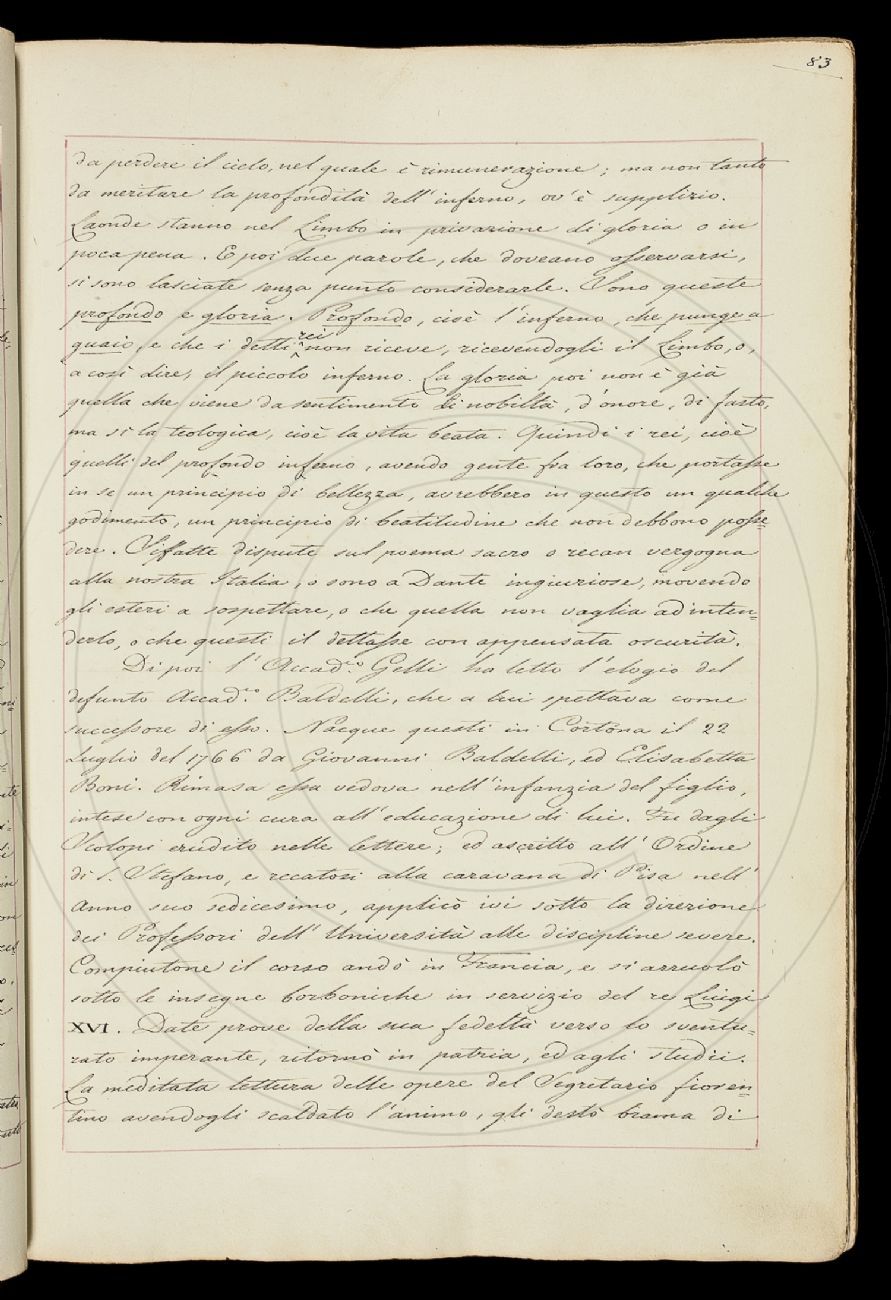 83
da perdere il cielo, nel quale è rimunerazione; ma non tanto
da meritare la profondità dell'inferno, ov'è supplizio.
Laonde stanno nel Limbo in privazione di gloria o in
poca pena. E poi due parole, che doveano osservarsi,
si sono lasciate senza punto considerarle. Sono queste
profondo e gloria. Profondo, cioè l'inferno, che punge a
guaio, e che i detti rei non riceve, ricevendogli il Limbo, o,
a così dire, il piccolo inferno. La gloria poi non è già
quella che viene da sentimento di nobiltà, d'onore, di fasto,
ma si la teologica, cioè la vita beata. Quindi i rei, cioè
quelli del profondo inferno, avendo gente fra loro, che portasse
in se un principio di bellezza, avrebbero in questo un qualche
godimento, un principio di beatitudine che non debbono posse=
dere. Siffatte dispute sul poema sacro o recan vergogna
alla nostra Italia, o sono a Dante ingiuriose, movendo
gli esteri a sospettare, o che quella non vaglia ad inten=
derlo, o che questi il dettasse con appensata oscurità.
Di poi l'Accad.co Gelli ha letto l'elogio del
defunto Accad.co Baldelli, che a lui spettava come
successore di esso. Nacque questi in Cortona il 22
Luglio del 1766 da Giovanni Baldelli, ed Elisabetta
Boni. Rimasa essa vedova nell'infanzia del figlio,
intese con ogni cura all'educazione di lui. Fu dagli
Scolopi erudito nelle lettere; ed ascritto all'Ordine
di S. Stefano, e recatosi alla caravana di Pisa nell'
Anno suo sedicesimo, applicò ivi sotto la direzione
dei Professori dell'Università alle discipline severe.
Compiutone il corso andò in Francia, e si arruolò
sotto le insegne borboniche in servizio del re Luigi
XVI. Date prove della sua fedeltà verso lo sventu=
rato imperante, ritornò in patria, ed agli studii.
La meditata lettura delle opere del Segretario fioren=
tino avendogli scaldato l'animo, gli destò brama di